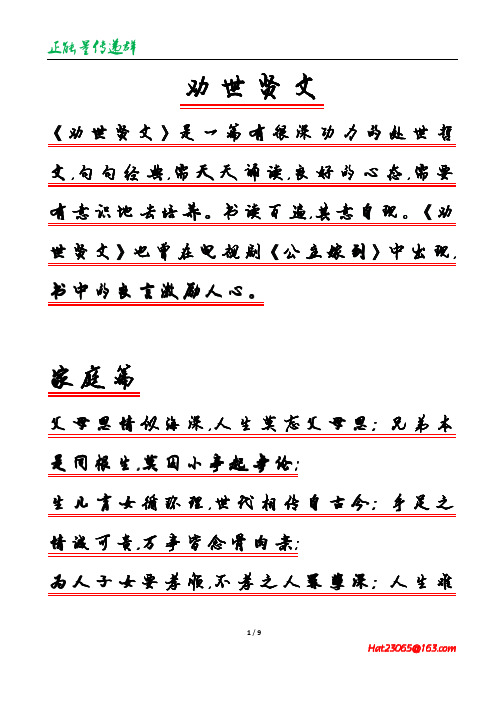 正能量传递群
劝世贤文
《劝世贤文》是一篇有很深功力的处世哲
文,句句经典,需天天诵读,良好的心态,需要
有意识地去培养。书读百遍,其意自现。《劝
世贤文》也曾在电视剧《公主嫁到》中出现,
书中的良言激励人心。
家庭篇
父母恩情似海深,人生莫忘父母恩;兄弟本
是同根生,莫因小事起争论;
生儿育女循环理,世代相传自古今;手足之
情诚可贵,万事皆念骨肉亲;
为人子女要孝顺,不孝之人罪孽深;人生难
1 / 9
Hat23065@163.com